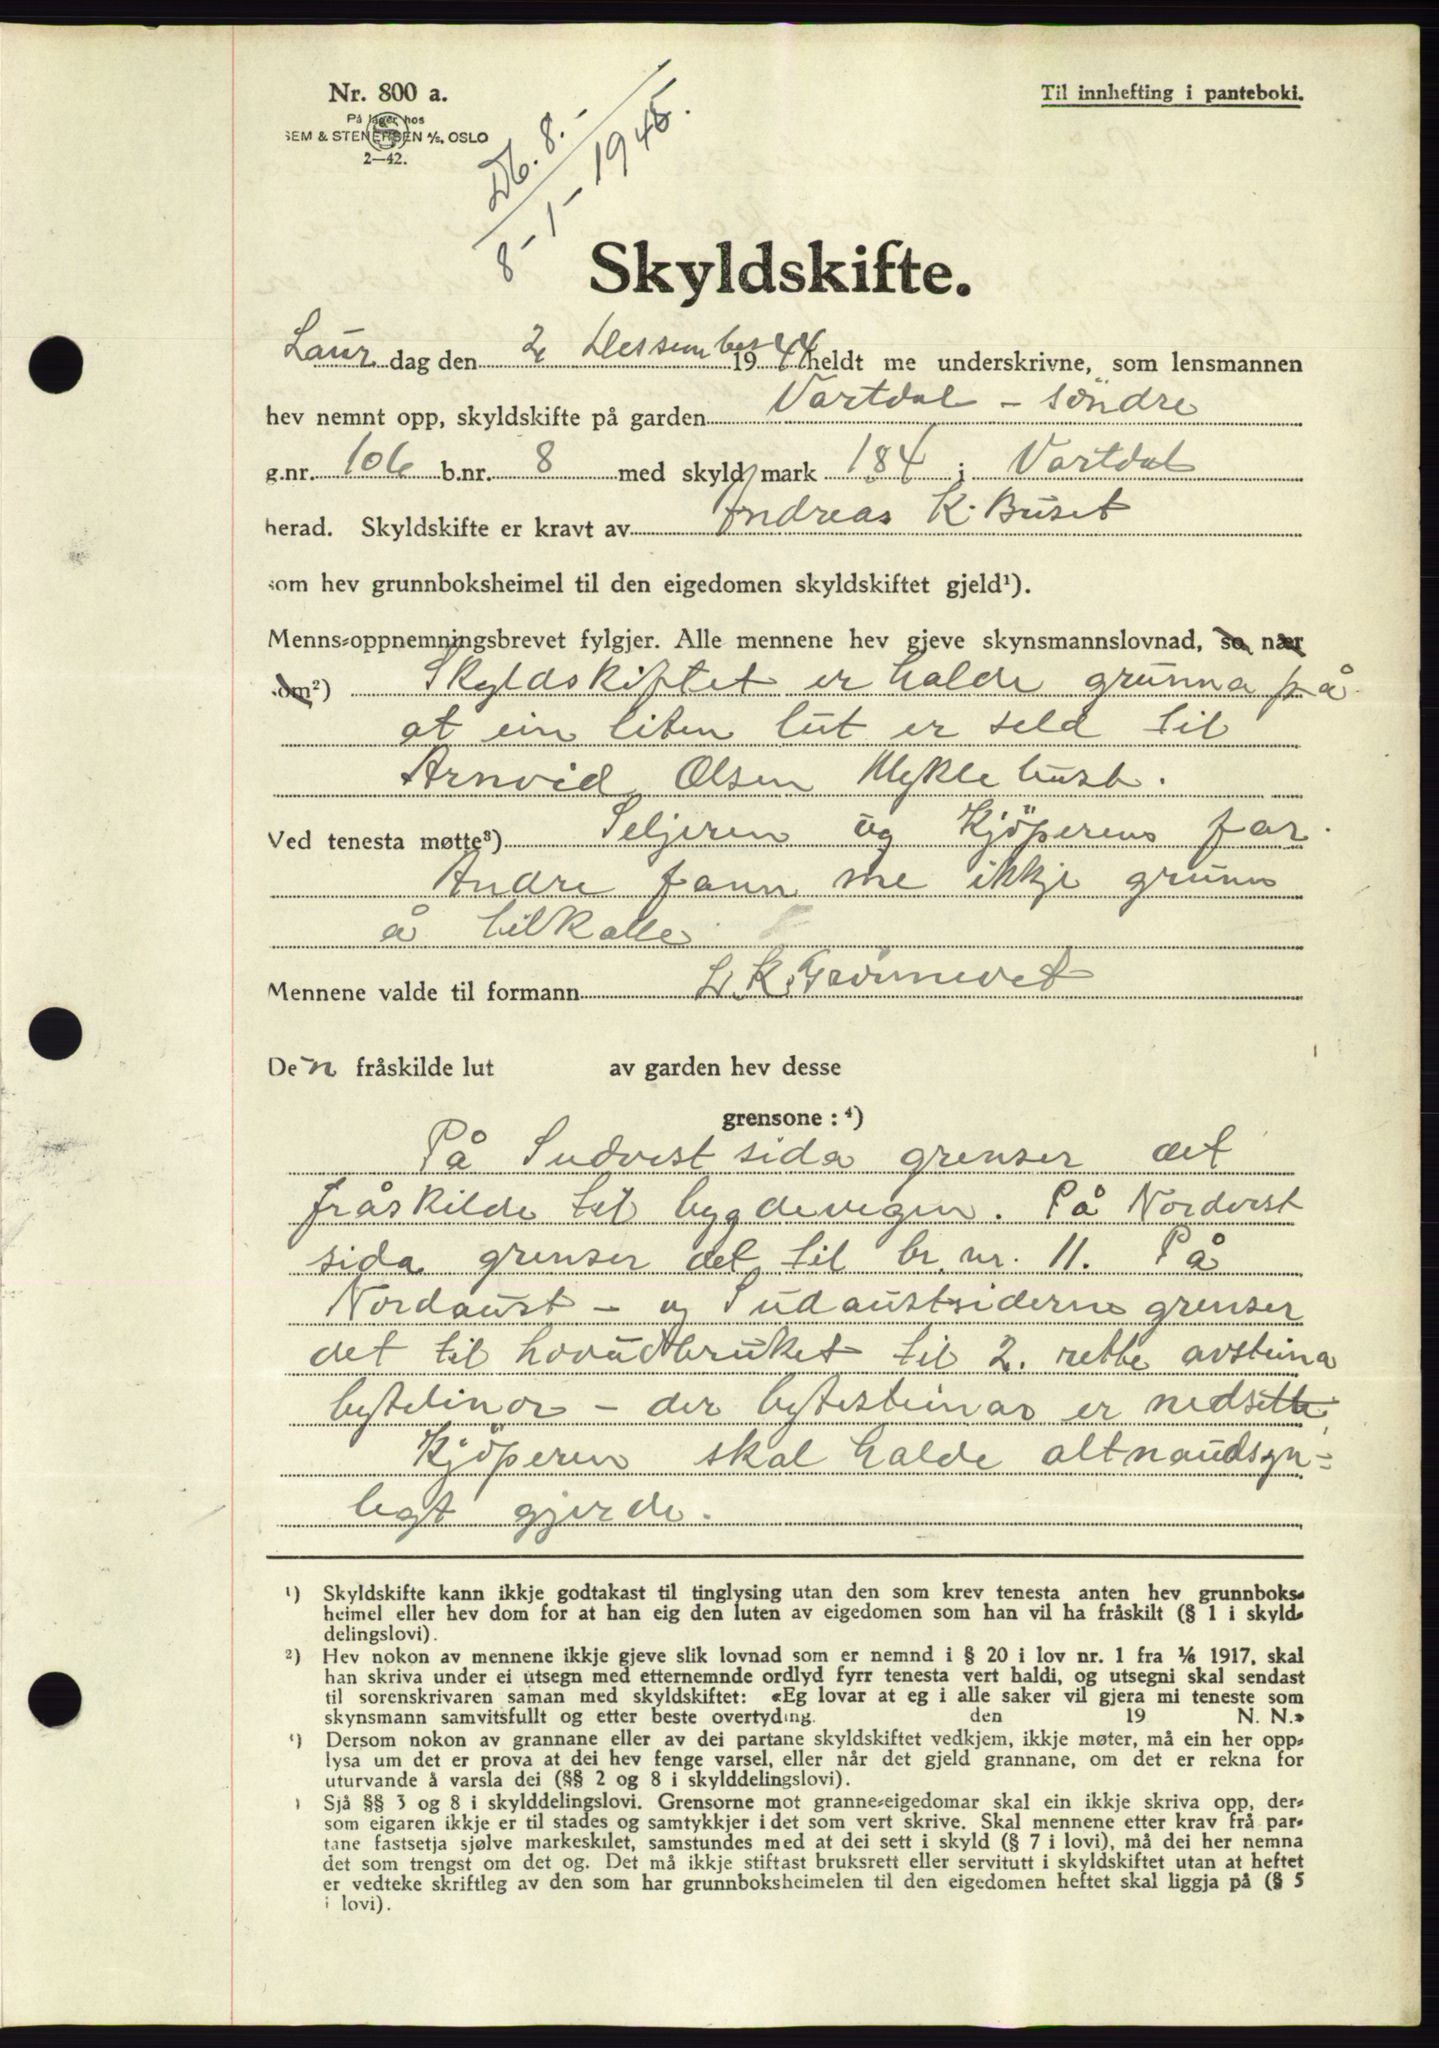 Nr. 800 a.
På lager hos
SEM & STENERSEN A/S, OSLO
2—42.
Til innhefting i panteboki.
Db. 8.-
8-1-1945.
Skyldskifte.
Laur dag den 2 Dessember 1944 heldt me underskrivne, som lensmannen
hev nemnt opp, skyldskifte på garden Vartdal - söndre
g.nr. 106 b.nr. 8 med skyld mark 1.84 i Vartdal
herad. Skyldskifte er kravt av Andreas K. Buset
som hev grunnboksheimel til den eigedomen skyldskiftet gjeld¹).
Menns-oppnemningsbrevet fylgjer. Alle mennene hev gjeve skynsmannslovnad, so nær
som²) Skyldskiftet er halde grunna på
at ein liten lut er seld til
Arnvid Olsen Myklebust.
Ved tenesta møtte³) Seljeren og Kjöperens far.
Andre fann me ikkje grunn
å tilkalle
Mennene valde til formann L. K. Grövnevet
Den fråskilde lut av garden hev desse
grensone : ⁴)
På Sudvest sida grenser det
fråskilde til bygdevegen. På Nordvest
sida grenser det til br. nr. 11. På
Nordaust - og Sudaustsiderne grenser
det til hovudbruket til 2. rette avsteina
bytelinor - der bytesteinar er nedsette,
Kjöperen skal halde altnaudsyn-
legt gjerde.
¹) Skyldskifte kann ikkje godtakast til tinglysing utan den som krev tenesta anten hev grunnboks-
heimel eller hev dom for at han eig den luten av eigedomen som han vil ha fråskilt (§ 1 i skyld-
delingslovi).
²) Hev nokon av mennene ikkje gjeve slik lovnad som er nemnd i § 20 i lov nr. 1 fra 1/6 1917, skal
han skriva under ei utsegn med etternemnde ordlyd fyrr tenesta vert haldi, og utsegni skal sendast
til sorenskrivaren saman med skyldskiftet: «Eg lovar at eg i alle saker vil gjera mi teneste som
skynsmann samvitsfullt og etter beste overtyding. den 19 N. N.»
³) Dersom nokon av grannane eller av dei partane skyldskiftet vedkjem, ikkje møter, må ein her opp-
lysa um det er prova at dei hev fenge varsel, eller når det gjeld grannane, om det er rekna for
uturvande å varsla dei (§§ 2 og 8 i skylddelingslovi).
) Sjå §§ 3 og 8 i skylddelingslovi. Grensorne mot granne-eigedomar skal ein ikkje skriva opp, der-
som eigaren ikkje er til stades og samtykkjer i det som vert skrive. Skal mennene etter krav frå par-
tane fastsetja sjølve markeskilet, samstundes med at dei sett i skyld (§ 7 i lovi), må dei her nemna
det som trengst om det og. Det må ikkje stiftast bruksrett eller servitutt i skyldskiftet utan at heftet
er vedteke skriftleg av den som har grunnboksheimelen til den eigedomen heftet skal liggja på (§ 5
i lovi).